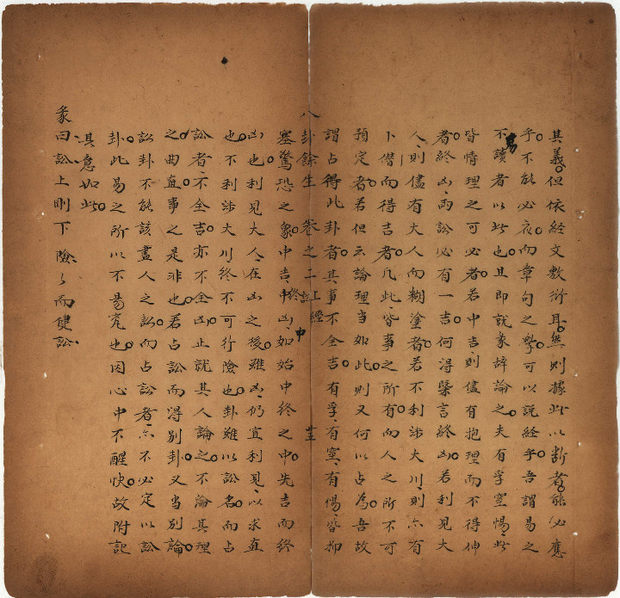 其義但依經文敷衍耳然則據此以斷者能必應
乎不能必夜而章句之學可以說經乎吾謂易之
不易讀者以此也且即就彖辭論之夫有孚窒惕此
皆情理之可必者若中吉則儘有抱理而不得伸
者終凶兩訟必有一吉何得槩言終凶若利見大
人則儘有大人向糊塗者若不利涉大川則亦有
卜僭而得吉者凡此皆事之所有而人之所不可
預定者若但云論理當如此則又何以占為吾故
謂占得此卦者其事不全吉有孚有窒有惕皆抑
八卦餘生 卷之二 上經 訟 廿
塞驚恐之象中吉終凶如始中終之中先吉而終
凶也利見大人在凶之後雖凶仍宜利見以求直
也不利涉大川終不可行險也卦雖以訟名而占
訟者不全吉亦不全凶止就其人論之不論其理
之曲直事之是非也若占訟而得別卦又當別論
訟卦不能該盡人之訟而占訟者亦不必定以訟
卦此易之所以不易亮也因心中不醒快故附記
其意如此
彖曰訟上剛下險々而健訟